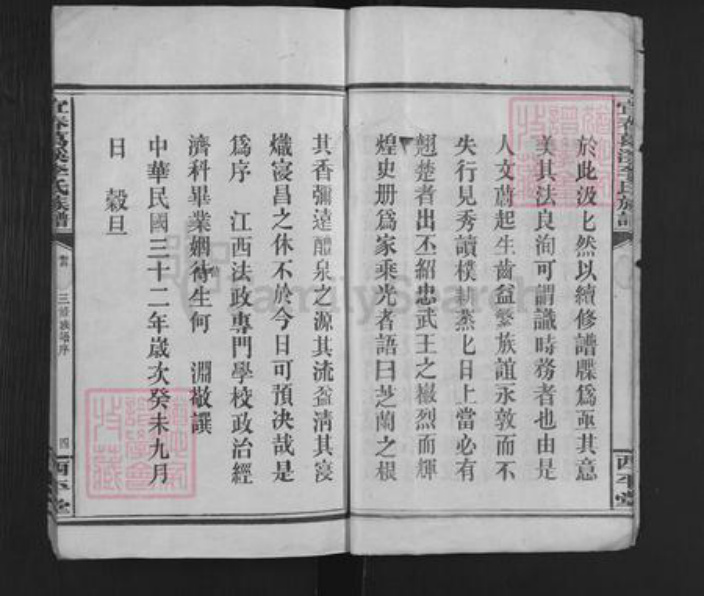 於此汲匕然以續修譜牒爲亟其意
美其法良洵可謂識時務者也由是
人文蔚起生齒益繁族誼永敦而不
失行見秀讀樸耕蒸匕日上當必有
翹楚者出丕紹忠武王之巌烈而輝
煌史册爲家乘光者語曰芝蘭之根
宜春葛溪李氏族譜
三修族譜序
四
西平堂
其香彌遠醴泉之源其流益清其寖
熾寖昌之休不於今日可預決哉是
爲序 江西法政專門學校政治經
濟科畢業姻待生何 淵敬譔
中華民國三十二年歲次癸未九月
日 穀旦
FamilySearch